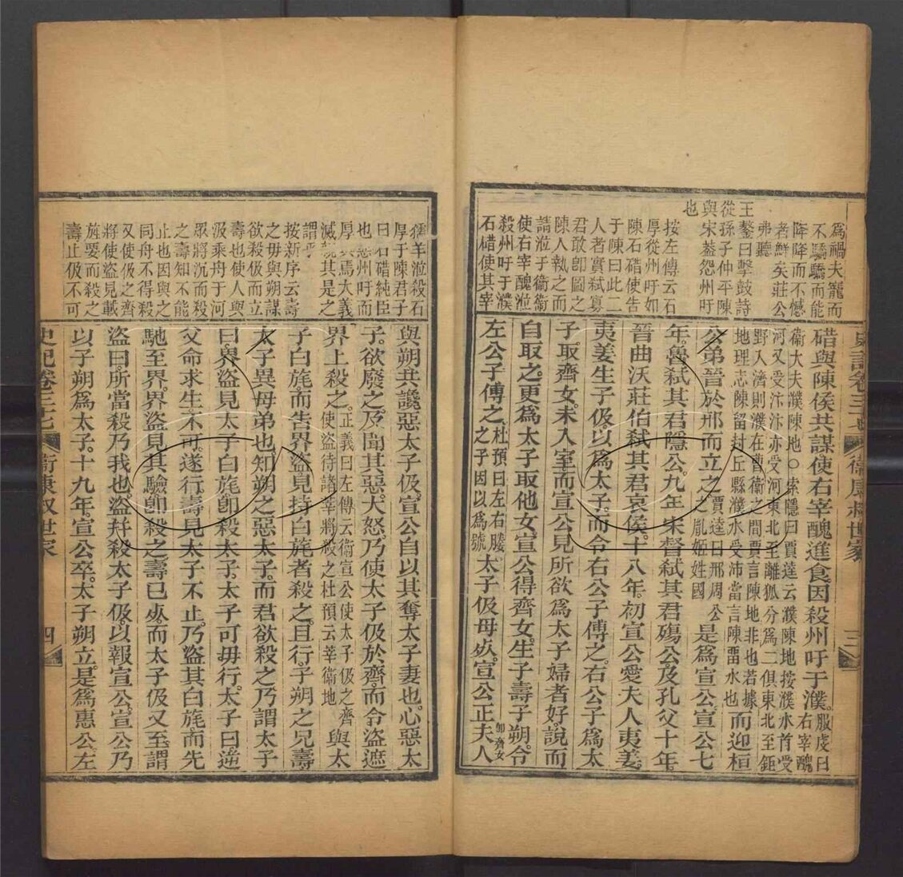 為禍夫寵而
不驕驕而能
降降而不憾
者鮮矣莊公
弗聽
王鏊曰擊鼓詩
從孫子仲平陳
與宋蓋怨州吁
也
按左傳云石
厚從州吁如
陳石碏使告
于陳曰此二
人者實弒寡
君敢卽圖之
陳人執之而
請涖于衞衞
使右宰醜涖
殺州吁于濮
石碏使其宰
史記卷三十七
衞康叔世家
三
碏與陳侯共謀使右宰醜進食因殺州吁于濮服虔曰右宰醜
衞大夫濮陳地○索隱曰賈逵云濮陳地按濮水首受
河又受汴汴亦受河東北至離狐分為二俱東北至鉅
野入濟則濮在曹衞之間賈言陳地非也若據
地理志陳留封丘縣濮水受沛當言陳留水也而迎桓
公弟晉於邢而立之賈逵曰邢周公胤姬姓國是為宣公宣公七
年魯弒其君隱公九年宋督弒其君殤公及孔父十年
晉曲沃莊伯弒其君哀侯十八年初宣公愛夫人夷姜
夷姜生子伋以為太子而令右公子傅之右公子為太
子取齊女未入室而宣公見所欲為太子婦者好說而
自取之更為太子取他女宣公得齊女生子壽子朔令
左公子傅之杜預曰左右媵之子因以為號太子伋母死宣公正夫人
猲羊涖殺石
厚于陳君子
曰石碏純臣
也惡州吁而
厚與焉大義
滅親其是之
謂乎
按新序云壽
之毋與朔謀
欲殺伋而立
壽也使人與
伋乘舟于河
將沈而殺
之壽知不能
止也因與之
同舟不得殺
又使伋之齊
將使盜見載
旄要而殺之
壽止伋不可
與朔共讒惡太子伋宣公自以其奪太子妻也心惡太
子欲廢之及聞其惡大怒乃使太子伋於齊而令盜遮
界上殺之正義曰左傳云衞宣公使太子伋之齊使盜待諸莘將殺之杜預云莘衞地與太
子白旄而告界盜見持白旄者殺之且行子朔之兄壽
太子異母弟也知朔之惡太子而君欲殺之乃謂太子
曰界盜見太子白旄卽殺太子太子可毋行太子曰逆
父命求生不可遂行壽見太子不止乃盜其白旄而先
馳至界界盜見其驗卽殺之壽已死而太子伋又至謂
盜曰所當殺乃我也盜幷殺太子伋以報宣公宣公乃
以子朔為太子十九年宣公卒太子朔立是為惠公左
史記卷三十七
衞康叔世家
四